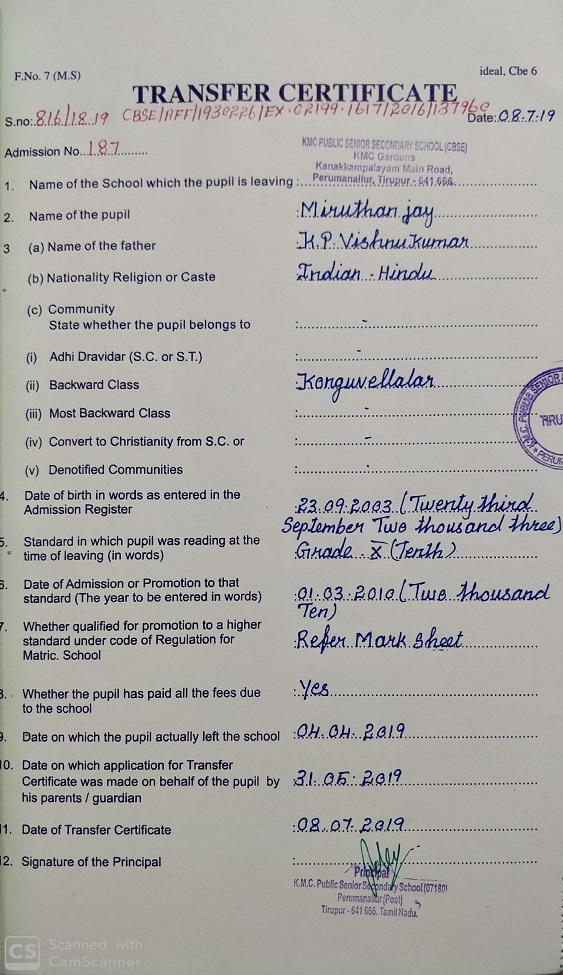 F.No. 7 (M.S)
ideal, Cbe 6
TRANSFER CERTIFICATE
S.no: 816/18.19 CBSE/AFF/1930226/EX-02199-1617/2016/13796 Date: 08.7.19
Admission No. 187
KMC PUBLIC SENIOR SECONDARY SCHOOL (CBSE)
KMC Gardens
Kanakkampalayam Main Road,
1. Name of the School which the pupil is leaving : Perumanallur, Tirupur - 641 666.
2. Name of the pupil : Miruthanjay
3 (a) Name of the father : K.P. Vishnu Kumar
(b) Nationality Religion or Caste : Indian - Hindu
(c) Community
State whether the pupil belongs to : -
(i) Adhi Dravidar (S.C. or S.T.) : -
(ii) Backward Class : Konguvellalar
(iii) Most Backward Class : -
(iv) Convert to Christianity from S.C. or : -
(v) Denotified Communities : -
4. Date of birth in words as entered in the : 23.09.2003 (Twenty third
Admission Register September Two thousand three)
5. Standard in which pupil was reading at the
time of leaving (in words) Grade - X (Tenth)
6. Date of Admission or Promotion to that
standard (The year to be entered in words) : 01.03.2010 (Two thousand
Ten)
7. Whether qualified for promotion to a higher
standard under code of Regulation for : Refer Mark Sheet
Matric. School
8. Whether the pupil has paid all the fees due : Yes
to the school
9. Date on which the pupil actually left the school : 04.04.2019
10. Date on which application for Transfer
Certificate was made on behalf of the pupil by : 31.05.2019
his parents / guardian
11. Date of Transfer Certificate : 08.07.2019
12. Signature of the Principal :
Principal
K.M.C. Public Senior Secondary School (07180)
Perumanallur (Post)
Tirupur - 641 666. Tamil Nadu.
CS Scanned with
CamScanner